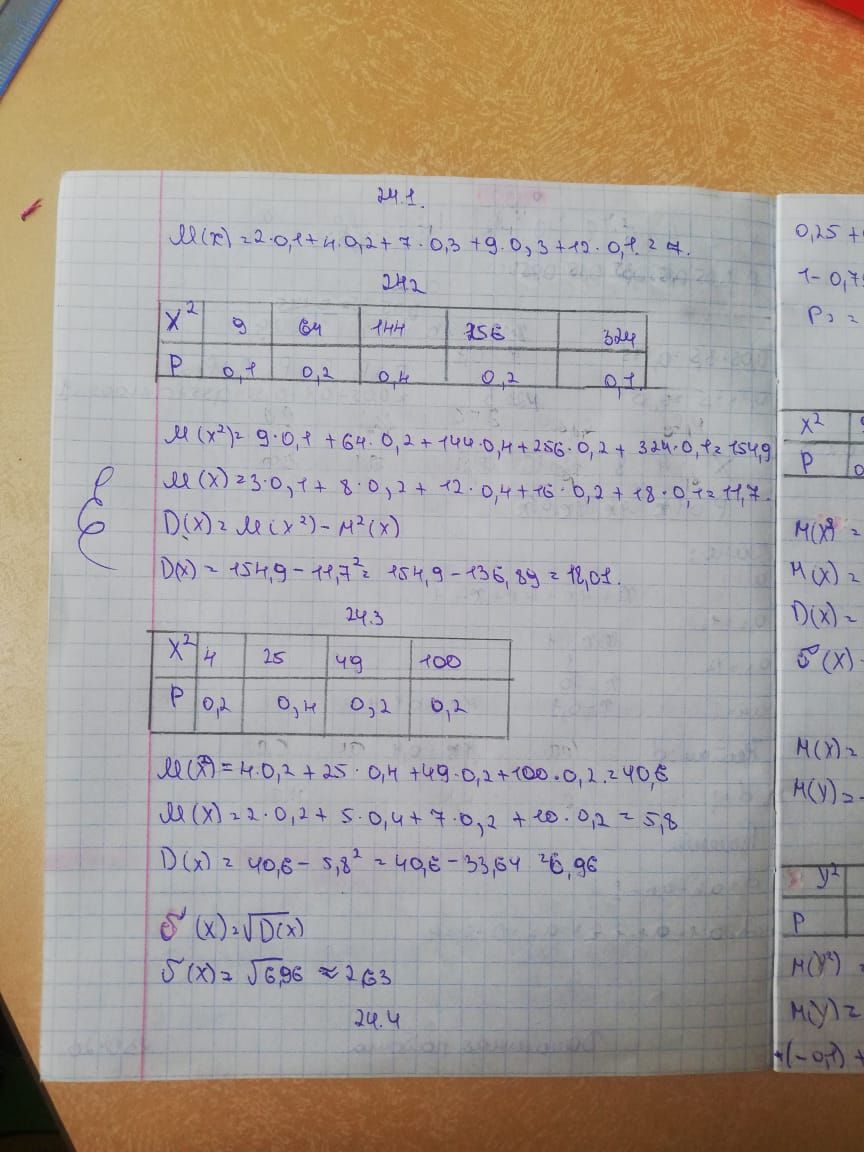 24.1.
M(x)=2·0,1+4·0,2+7·0,3+9·0,3+12·0,1=7.
24.2
X² 9 64 144 256 324
P 0,1 0,2 0,4 0,2 0,1
M(x²)=9·0,1+64·0,2+144·0,4+256·0,2+324·0,1=154,9
M(x)=3·0,1+8·0,2+12·0,4+16·0,2+18·0,1=11,7.
D(x)=M(x²)-M²(x)
D(x)=154,9-11,7²=154,9-136,89=18,01.
24.3
X² 4 25 49 100
P 0,2 0,4 0,2 0,2
M(x²)=4·0,2+25·0,4+49·0,2+100·0,2.=40,6
M(x)=2·0,2+5·0,4+7·0,2+10·0,2=5,8
D(x)=40,6-5,8²=40,6-33,64=6,96
σ(x)=√D(x)
σ(x)=√6,96≈2,63
24.4
0,25+
1-0,7
P₃=
X²
P 0
M(X²=
M(X)=
D(X)=
σ(X)
M(X)=
M(Y)=-
Y²
P
M(Y²)=
M(Y)=
+(-0,1)+